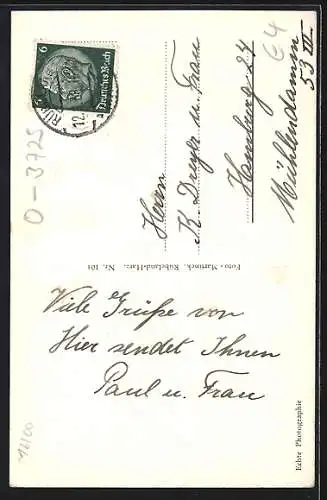 Viele Grüße von
Hier sendet Ihnen
Paul u. Frau
Herrn
K. Dreyer u. Frau
Hamburg 24
Mühlendamm
53 III
Foto-Martinek, Rübeland-Harz. Nr. 101
Echte Photographie
Deutsches Reich
6
6
O-3725